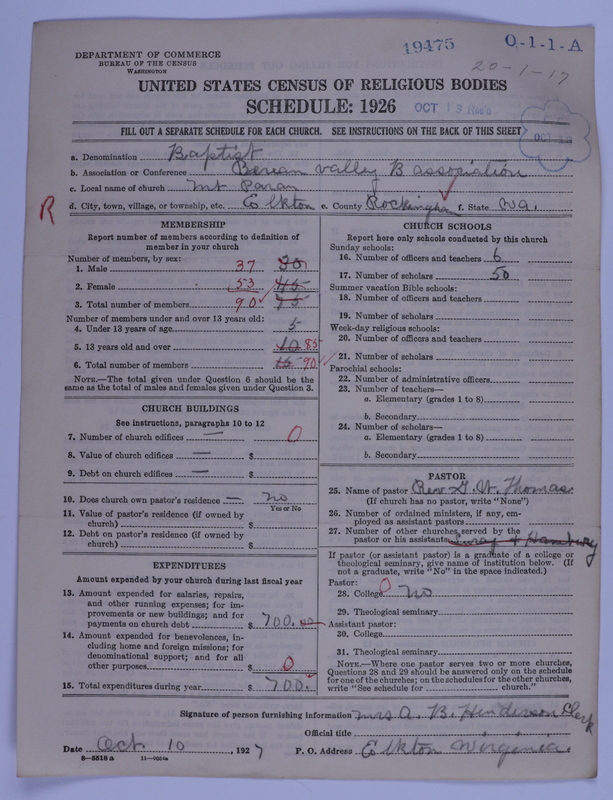 DEPARTMENT OF COMMERCE
BUREAU OF THE CENSUS
WASHINGTON
19475
O-1-1-A
20-1-17
UNITED STATES CENSUS OF RELIGIOUS BODIES
SCHEDULE: 1926
OCT 13
FILL OUT A SEPARATE SCHEDULE FOR EACH CHURCH. SEE INSTRUCTIONS ON THE BACK OF THIS SHEET
OCT
a. Denomination Baptist
b. Association or Conference Berean valley B association
c. Local name of church Mt Paran
R
d. City, town, village, or township, etc. Elkton e. County Rockingham f. State Va.
MEMBERSHIP
Report number of members according to definition of
member in your church
Number of members, by sex:
1. Male 37 30
2. Female 53 45
3. Total number of members 90 75
Number of members under and over 13 years old:
4. Under 13 years of age 5
5. 13 years old and over 10 85
6. Total number of members 15 90
NOTE.—The total given under Question 6 should be the
same as the total of males and females given under Question 3.
CHURCH BUILDINGS
See instructions, paragraphs 10 to 12
7. Number of church edifices — 0
8. Value of church edifices — $
9. Debt on church edifices — $
10. Does church own pastor's residence — no
Yes or No
11. Value of pastor's residence (if owned by
church) $
12. Debt on pastor's residence (if owned by
church) $
EXPENDITURES
Amount expended by your church during last fiscal year
13. Amount expended for salaries, repairs,
and other running expenses; for im-
provements or new buildings; and for
payments on church debt $ 700.00
14. Amount expended for benevolences, in-
cluding home and foreign missions; for
denominational support; and for all
other purposes $ 0
15. Total expenditures during year $ 700.
CHURCH SCHOOLS
Report here only schools conducted by this church
Sunday schools:
16. Number of officers and teachers 6
17. Number of scholars 50
Summer vacation Bible schools:
18. Number of officers and teachers
19. Number of scholars
Week-day religious schools:
20. Number of officers and teachers
21. Number of scholars
Parochial schools:
22. Number of administrative officers
23. Number of teachers—
a. Elementary (grades 1 to 8)
b. Secondary
24. Number of scholars—
a. Elementary (grades 1 to 8)
b. Secondary
PASTOR
25. Name of pastor Rev. G. W. Thomas
(If church has no pastor, write "None")
26. Number of ordained ministers, if any, em-
ployed as assistant pastors
27. Number of other churches served by the
pastor or his assistants Luray &
If pastor (or assistant pastor) is a graduate of a college or
theological seminary, give name of institution below. (If
not a graduate, write "No" in the space indicated.)
Pastor:
28. College 0 No
29. Theological seminary
Assistant pastor:
30. College
31. Theological seminary
NOTE.—Where one pastor serves two or more churches,
Questions 28 and 29 should be answered only on the schedule
for one of the churches; on the schedules for the other churches,
write "See schedule for church."
Signature of person furnishing information Mrs A. B. Henderson Clerk
Official title
Date Oct. 10, 1927 P. O. Address Elkton Virginia.
8-5518a 11-9024a